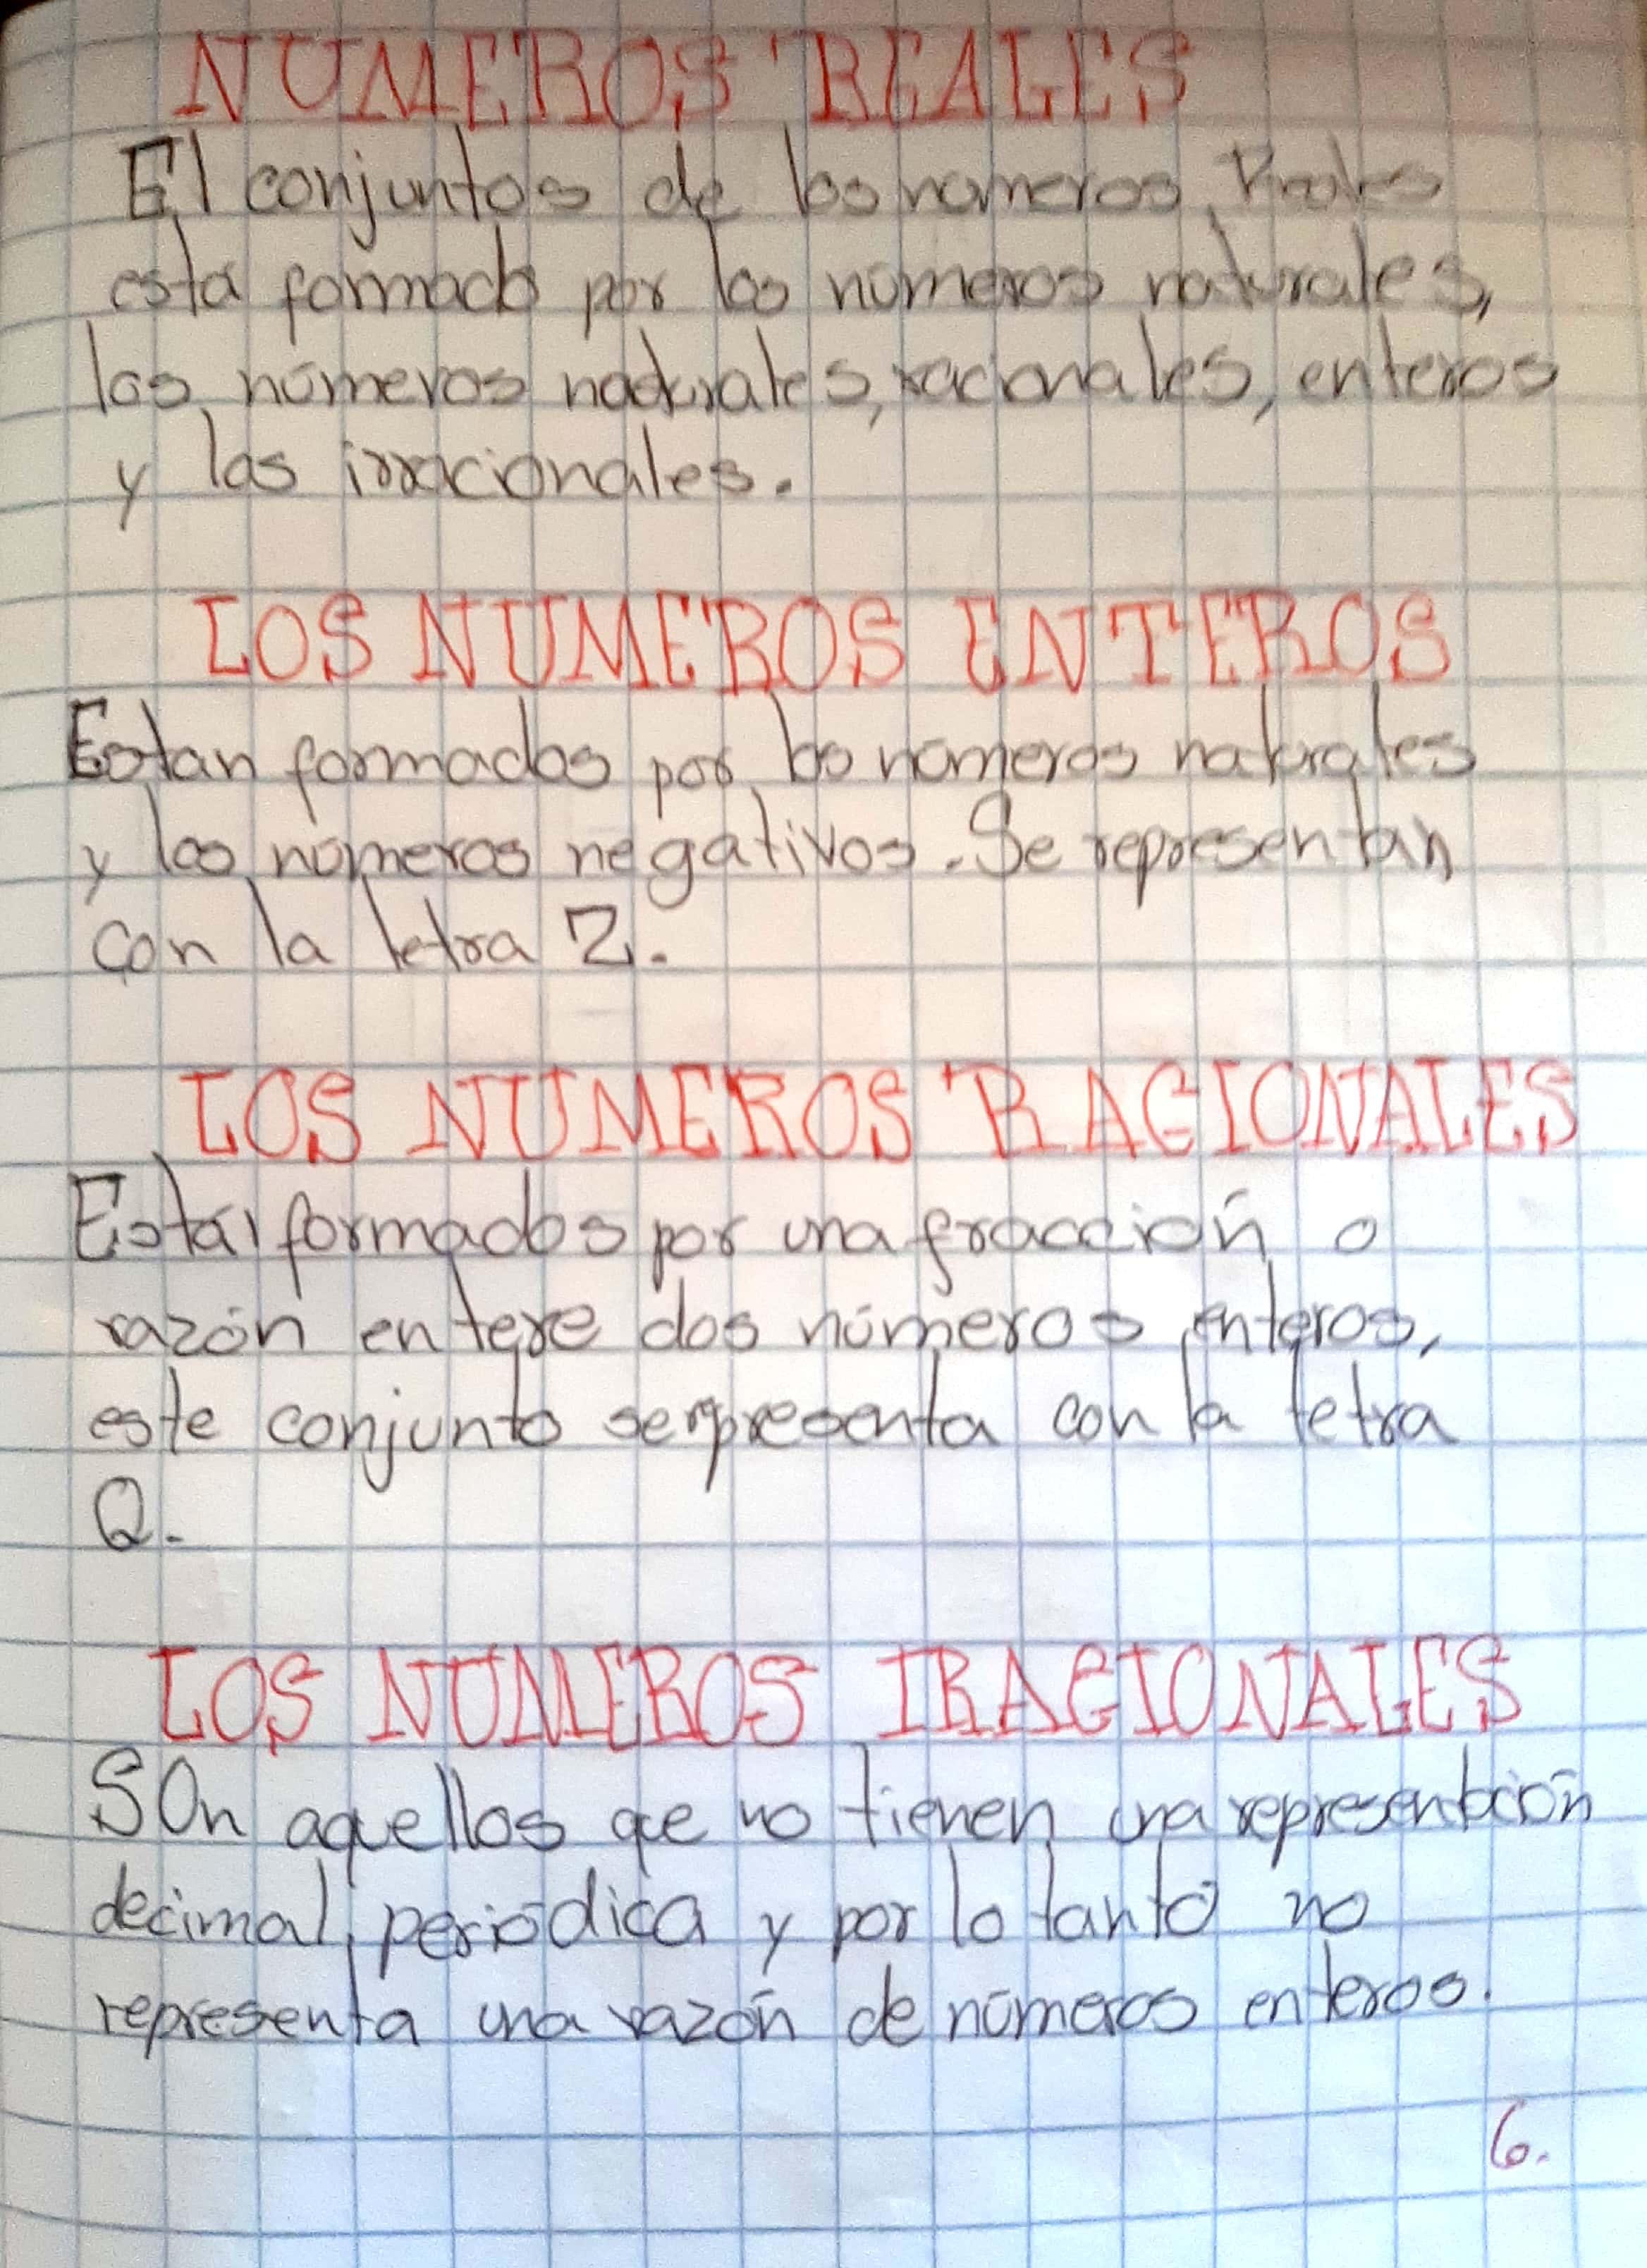 NUMEROS REALES
El conjuntos de los números Reales
está formado por los números naturales,
los números naturales, racionales, enteros
y los irracionales.
LOS NUMEROS ENTEROS
Estan formados por los números naturales
y los números negativos. Se representan
con la letra Z.
LOS NUMEROS RACIONALES
Están formados por una fracción o
razón entere dos números enteros,
este conjunto serpresenta con la letra
Q.
LOS NUMEROS IRACIONALES
SOn aquellos que no tienen una representación
decimal periódica y por lo tanto no
representa una razón de números enteros.
6.